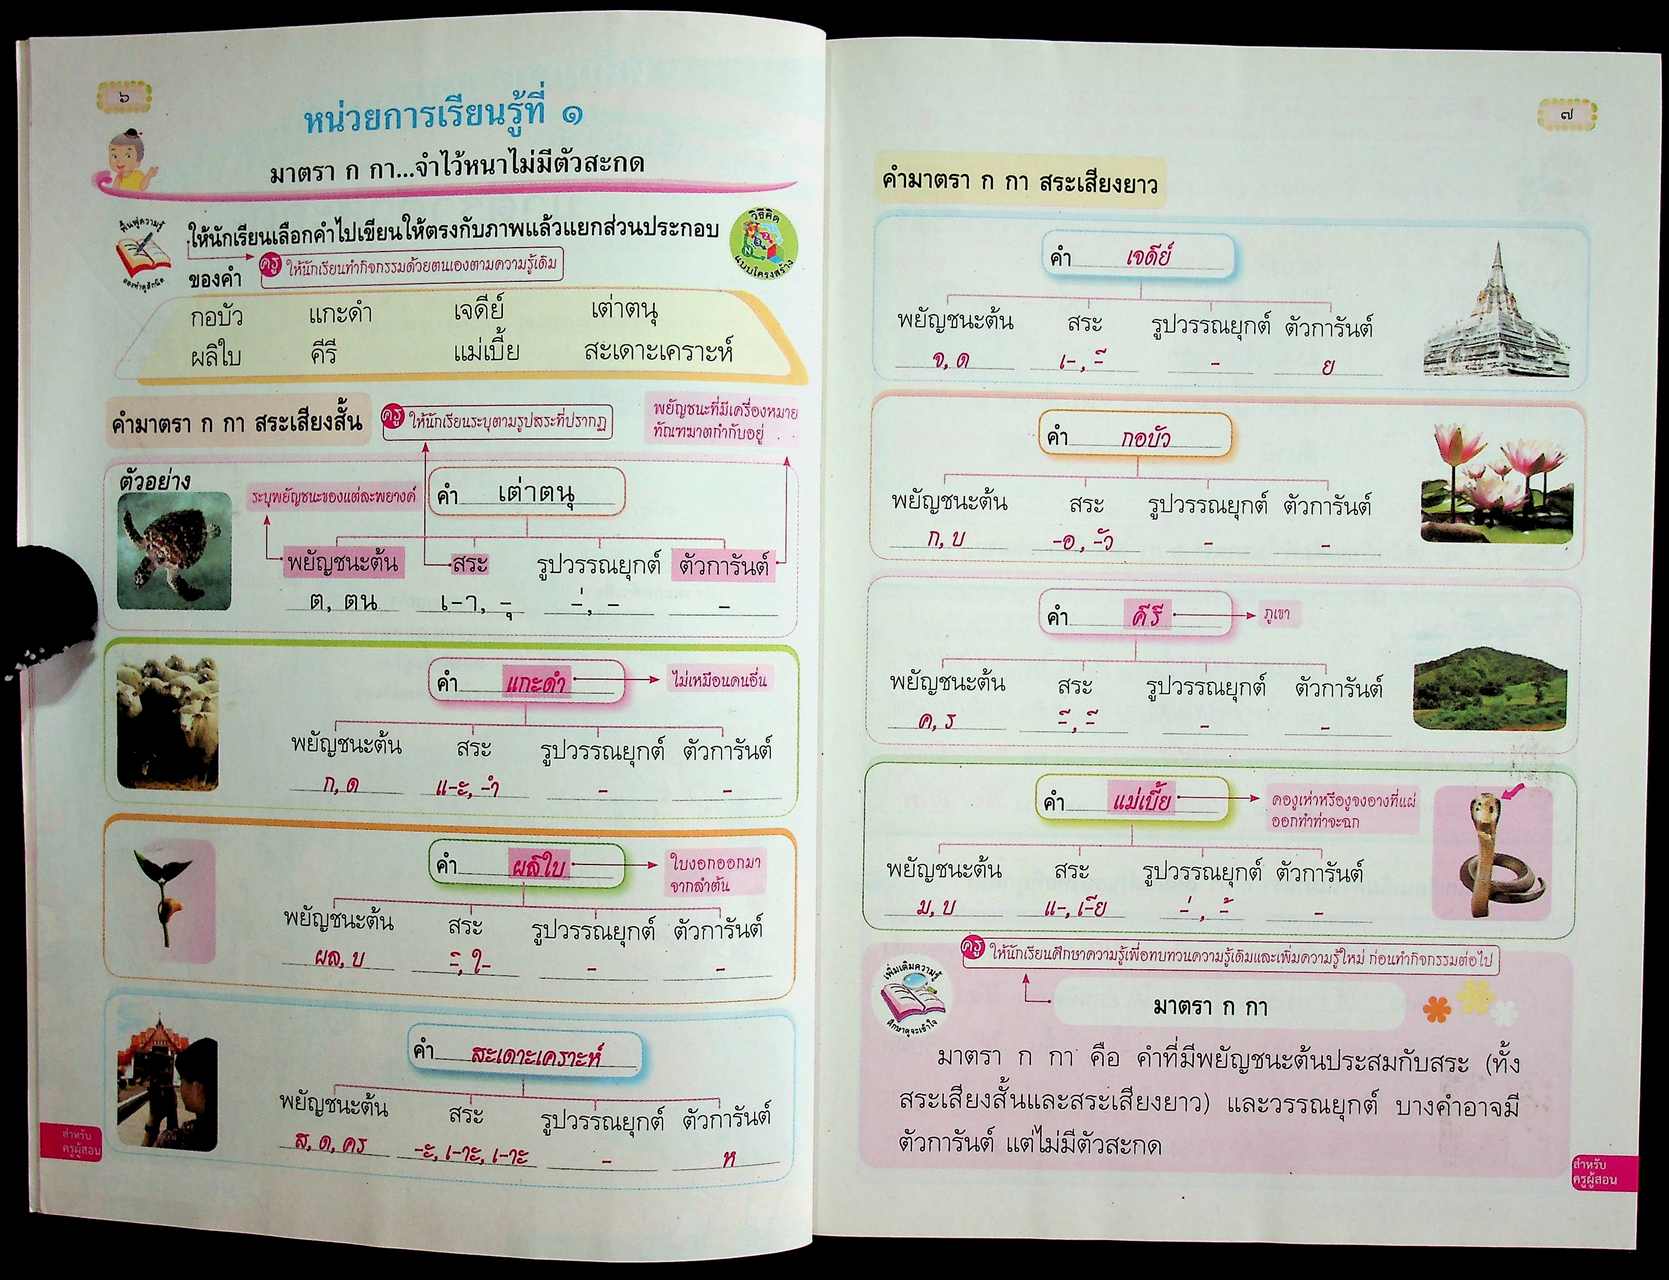 ๖
หน่วยการเรียนรู้ที่ ๑
มาตรา ก กา...จำไว้หนาไม่มีตัวสะกด
ฟื้นฟูความรู้
ลองทำดูสักนิด
ให้นักเรียนเลือกคำไปเขียนให้ตรงกับภาพแล้วแยกส่วนประกอบ
ของคำ
ครู ให้นักเรียนทำกิจกรรมด้วยตนเองตามความรู้เดิม
วิธีคิด
แบบโครงสร้าง
กอบัว แกะดำ เจดีย์ เต่าตนุ
ผลิใบ คีรี แม่เบี้ย สะเดาะเคราะห์
คำมาตรา ก กา สระเสียงสั้น
ครู ให้นักเรียนระบุตามรูปสระที่ปรากฏ
พยัญชนะที่มีเครื่องหมาย
ทัณฑฆาตกำกับอยู่
ตัวอย่าง
ระบุพยัญชนะของแต่ละพยางค์
คำ เต่าตนุ
พยัญชนะต้น สระ รูปวรรณยุกต์ ตัวการันต์
ต, ตน เ-า, -ุ -่, - -
คำ แกะดำ
ไม่เหมือนคนอื่น
พยัญชนะต้น สระ รูปวรรณยุกต์ ตัวการันต์
ก, ด แ-ะ, -ำ - -
คำ ผลิใบ
ใบงอกออกมา
จากลำต้น
พยัญชนะต้น สระ รูปวรรณยุกต์ ตัวการันต์
ผล, บ -ิ, ใ- - -
คำ สะเดาะเคราะห์
พยัญชนะต้น สระ รูปวรรณยุกต์ ตัวการันต์
ส, ด, คร -ะ, เ-าะ, เ-าะ - ห
สำหรับ
ครูผู้สอน
๗
คำมาตรา ก กา สระเสียงยาว
คำ เจดีย์
พยัญชนะต้น สระ รูปวรรณยุกต์ ตัวการันต์
จ, ด เ-, -ี - ย
คำ กอบัว
พยัญชนะต้น สระ รูปวรรณยุกต์ ตัวการันต์
ก, บ -อ, -ัว - -
คำ คีรี
ภูเขา
พยัญชนะต้น สระ รูปวรรณยุกต์ ตัวการันต์
ค, ร -ี, -ี - -
คำ แม่เบี้ย
คองูเห่าหรืองูจงอางที่แผ่
ออกทำท่าจะฉก
พยัญชนะต้น สระ รูปวรรณยุกต์ ตัวการันต์
ม, บ แ-, เ-ีย -่, -้ -
ครู ให้นักเรียนศึกษาความรู้เพื่อทบทวนความรู้เดิมและเพิ่มความรู้ใหม่ ก่อนทำกิจกรรมต่อไป
เพิ่มเติมความรู้
ศึกษาดูจะเข้าใจ
มาตรา ก กา
มาตรา ก กา คือ คำที่มีพยัญชนะต้นประสมกับสระ (ทั้ง
สระเสียงสั้นและสระเสียงยาว) และวรรณยุกต์ บางคำอาจมี
ตัวการันต์ แต่ไม่มีตัวสะกด
สำหรับ
ครูผู้สอน